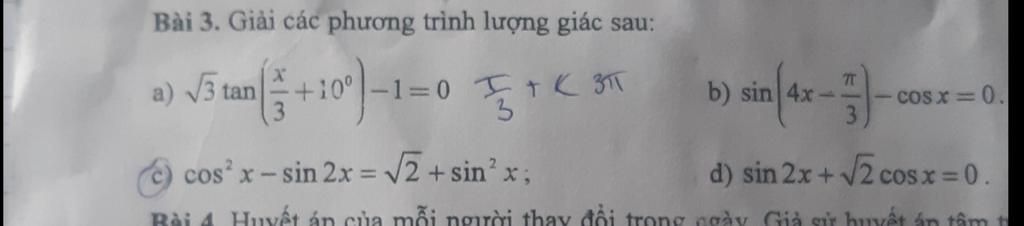 Bài 3. Giải các phương trình lượng giác sau:
a) √3 tan(x/3 + 10⁰) − 1 = 0 π/3 + K 3π b) sin(4x − π/3) − cos x = 0.
c) cos² x − sin 2x = √2 + sin² x ; d) sin 2x + √2 cos x = 0 .
Bài 4. Huyết áp của mỗi người thay đổi trong ngày. Giả sử huyết áp tâm